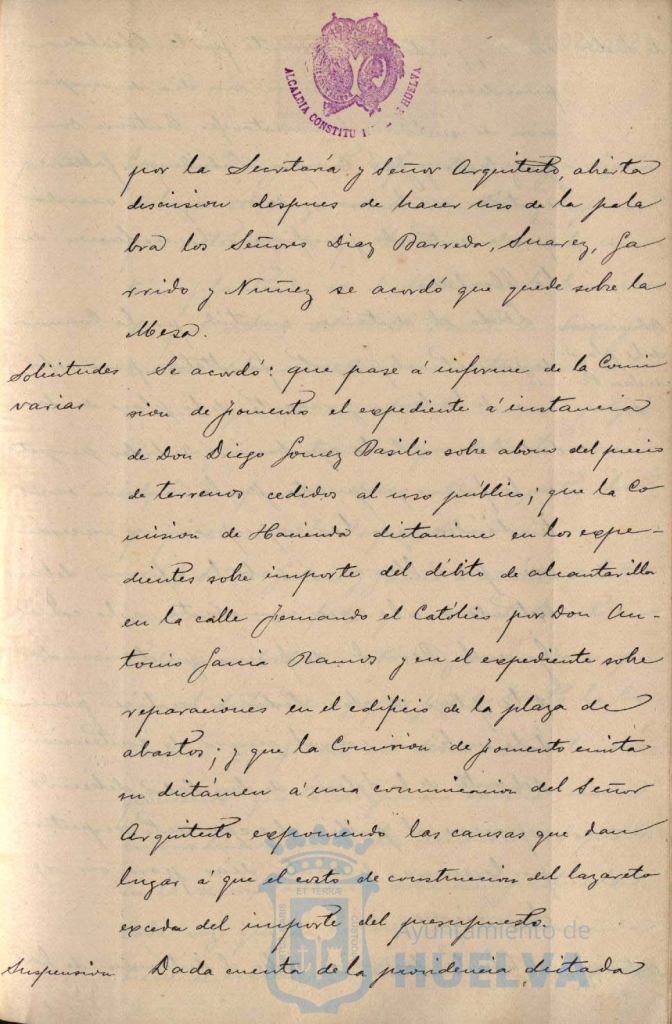 ALCALDIA CONSTITU HUELVA
por la Secretaría y Señor Arquitecto, abierta
discusion despues de hacer uso de la pala
bra los Señores Diaz Barreda, Suarez, Ga
rrido y Nuñez se acordó que quede sobre la
Mesa.
Solicitudes varias
Se acordó: que pase á informe de la Comi
sion de fomento el expediente á instancia
de Don Diego Gomez Basilio sobre abono del precio
de terrenos cedidos al uso público; que la Co
mision de Hacienda dictamine en los expe-
dientes sobre importe del débito de alcantarilla
en la calle Fernando el Católico por Don An-
tonio Garcia Ramos y en el expediente sobre
reparaciones en el edificio de la plaza de
abastos; y que la Comision de fomento emita
su dictámen á una comunicacion del Señor
Arquitecto exponiendo las causas que dan
lugar á que el costo de construccion del lazareto
exceda del importe del presupuesto.
Suspension
Dada cuenta de la providencia dictada
ET TERRÆ
Ayuntamiento de
HUELVA